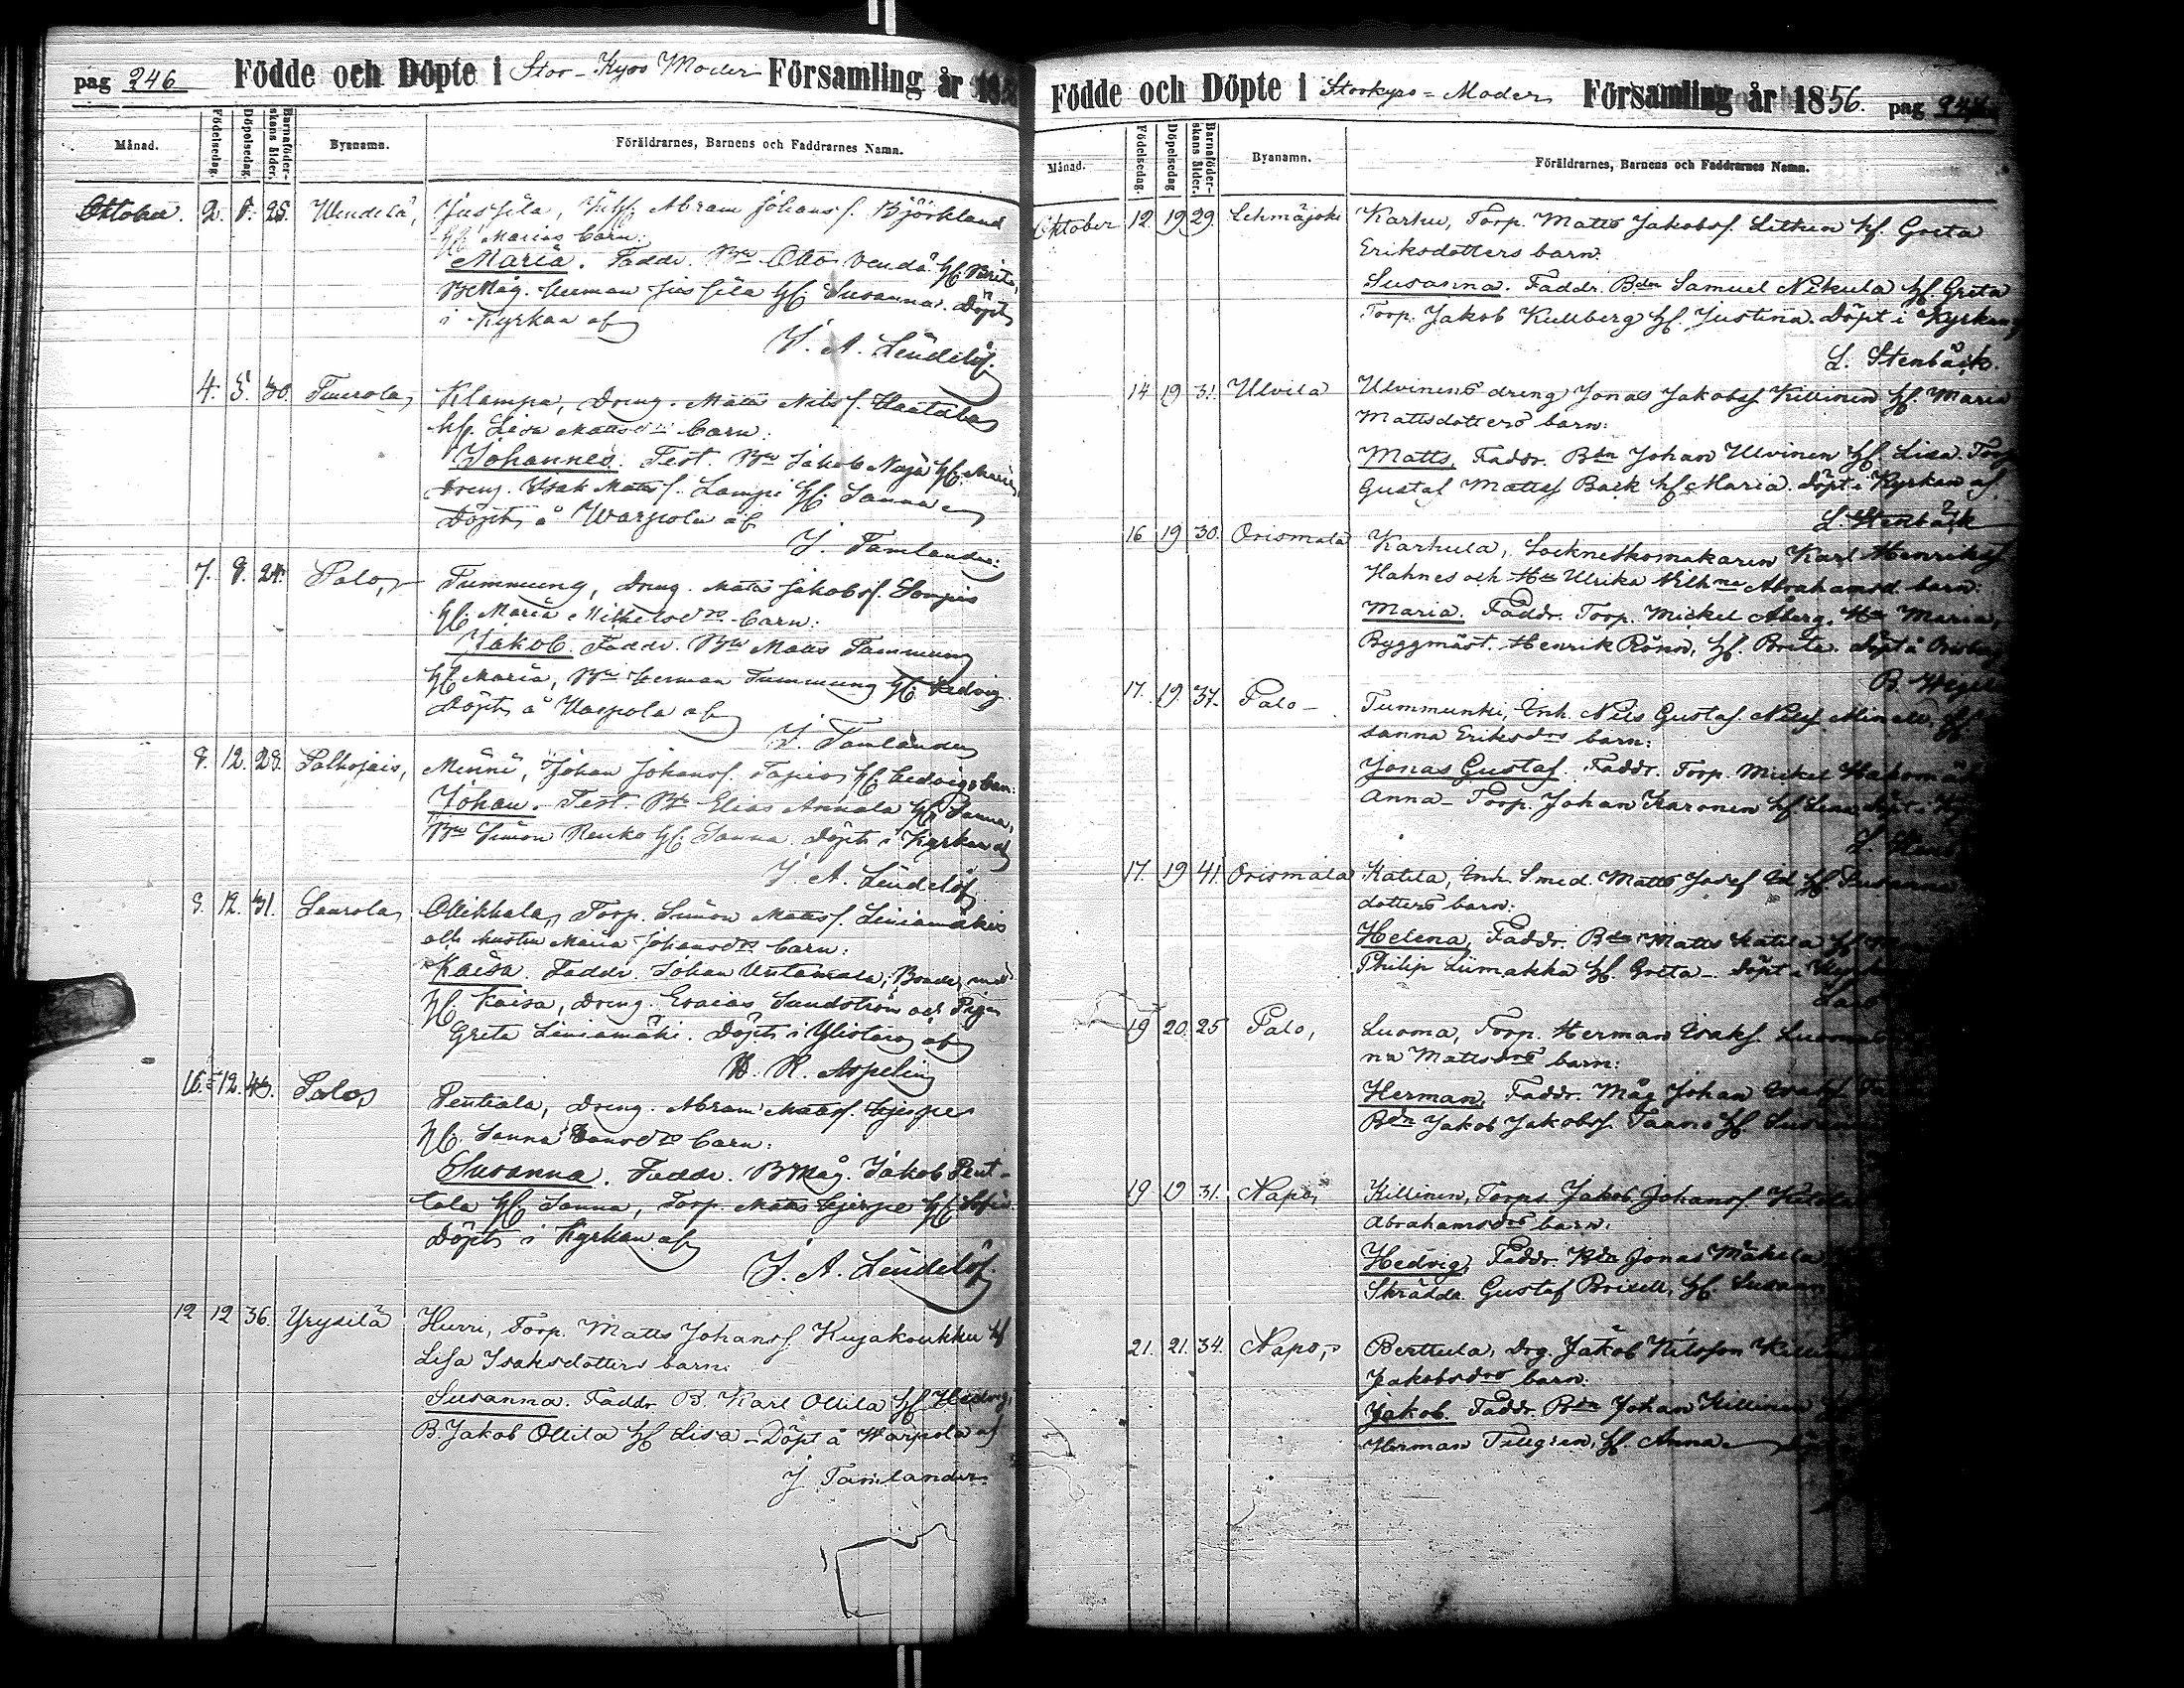 pag 246 Födde och Döpte i Stor-Kyro Moder Församling år 185
Månad. Födelsedag. Döpelsedag. Barnaföderskans ålder. Byanamn. Föräldrarnes, Barnens och Faddrarnes Namn.
Oktober. 2. 8. 25. Wendelä, Jussila, Abram Johansf. Björklund
hf. Marias barn:
Maria. Faddr. Bn Otto Vendä hf. Brita,
Måg. Herman Jussila hf. Susanna. Döpt
i Kyrkan af
J. A. Lindelöf.
4. 5. 30. Tuurola, Klampa, Dreng. Matts Nilsf. Haatala
hf. Lisa Matts barn:
Johannes. Test. Bn Jakob hf. Maria
Dreng. Isak Mattsf. Lampi hf. Sanna
Döpt å Warpola af
J. Tamlander.
7. 8. 24. Palo, Tummung, Dreng. Matts Jakobsf.
hf. Maria Mikels barn:
Jakob. Faddr. Bn Matts Tammung
hf. Maria, Bn Herman Tummung hf. Hedvig.
Döpt å Warpola af
J. Tamlander
9. 12. 28. Palhojais, Minni, Johan Johansf. Tapios hf. Hedvigs barn:
Johan. Test. Bn Elias Annala hf. Sanna,
Bn Simon Renko hf. Sanna Döpt i Kyrkan af
J. A. Lindelöf
9. 12. 31. Laurola, Ollikkala, Torp. Simon Mattsf. Liniamäkis
och hustru Maria Johansdrs barn:
Kaisa. Faddr. Johan
hf. Kaisa, Dreng. Esaias Sundström och Pigan
Greta Liniamäki. Döpt i Ylistaro af
R. Aspelin
12. 43. Palo, Penttala, Dreng. Abram Mattsf.
hf. Sanna barn:
Susanna. Faddr. Måg. Jakob Pent-
tala hf. Sanna, Torp. Matts hf. Sofia
Döpt i Kyrkan af
J. A. Lindelöf.
12 12 36. Yrysilä Hurri, Torp. Matts Johansf. Kujakoukku hf
Lisa Isaksdotters barn:
Susanna. Faddr. B. Karl Ollila hf Hedvig,
B. Jakob Ollila hf Lisa - Döpt å Warpola af
J Tamlander.
Födde och Döpte i Storkyro = Moder Församling år 1856. pag
Månad. Födelsedag. Döpelsedag Barnaföderskans ålder. Byanamn. Föräldrarnes, Barnens och Faddrarnes Namn.
Oktober 12. 19 29. Lehmäjoki Karhu, Torp. Matts Jakobsf. Litken hf. Greta
Eriksdotters barn:
Susanna. Faddr. Bdn Samuel Nikula hf. Greta
Torp. Jakob Kullberg hf. Justina. Döpt i Kyrkan
L. Stenbäck.
14 19 31. Ulvila Ulvinens dreng Jonas Jakobsf Killinen hf. Maria
Mattsdotters barn:
Matts, Faddr. Bdn Johan Ulvinen hf. Lisa. Torp
Gustaf Mattsf Back hf Maria. döpt i Kyrkan af
L. Stenbäck
16 19 30. Orismala Karhula, Socknetkomakaren Karl Henriksf
Hahnes och Hu Ulrika Vilhna Abrahamsd. barn:
Maria. Faddr. Torp. Mickel Åberg, Hu Maria,
Byggmäst. Henrik Rönn, hf. Brita. döpt å
B.
17. 19. 37. Palo - Tummunki, Inh. Nils Gustaf Nilsf
Sanna Eriksdrs barn:
Jonas Gustaf. Faddr. Torp. Mickel
Anna - Torp. Johan Karonen hf. Lisa döpt i
L.
17. 19 41. Orismala Katila, Inh. Smed. Matts Josef hf. Susanna
dotters barn:
Helena, Faddr. Bdn Matts Katila hf
Philip Liimakka hf. Greta - döpt i Kyrk
19 20. 25 Palo, Luoma, Torp. Herman Isaksf.
na Mattsdrs barn:
Herman, Faddr. Måg Johan
Bdn Jakob Jakobsf. hf
19 19 31. Napo, Killinen, Torps Jakob Johansf
Abrahamsdrs barn:
Hedvig, Faddr. Bdn Jonas Mäkelä
Skrädda. Gustaf hf. Susann
21. 21. 34. Napo, Berttula, Drg. Jakob Nilsson
Jakobsdrs barn:
Jakob. Faddr. Bdn Johan Killinen
Herman hf. Anna